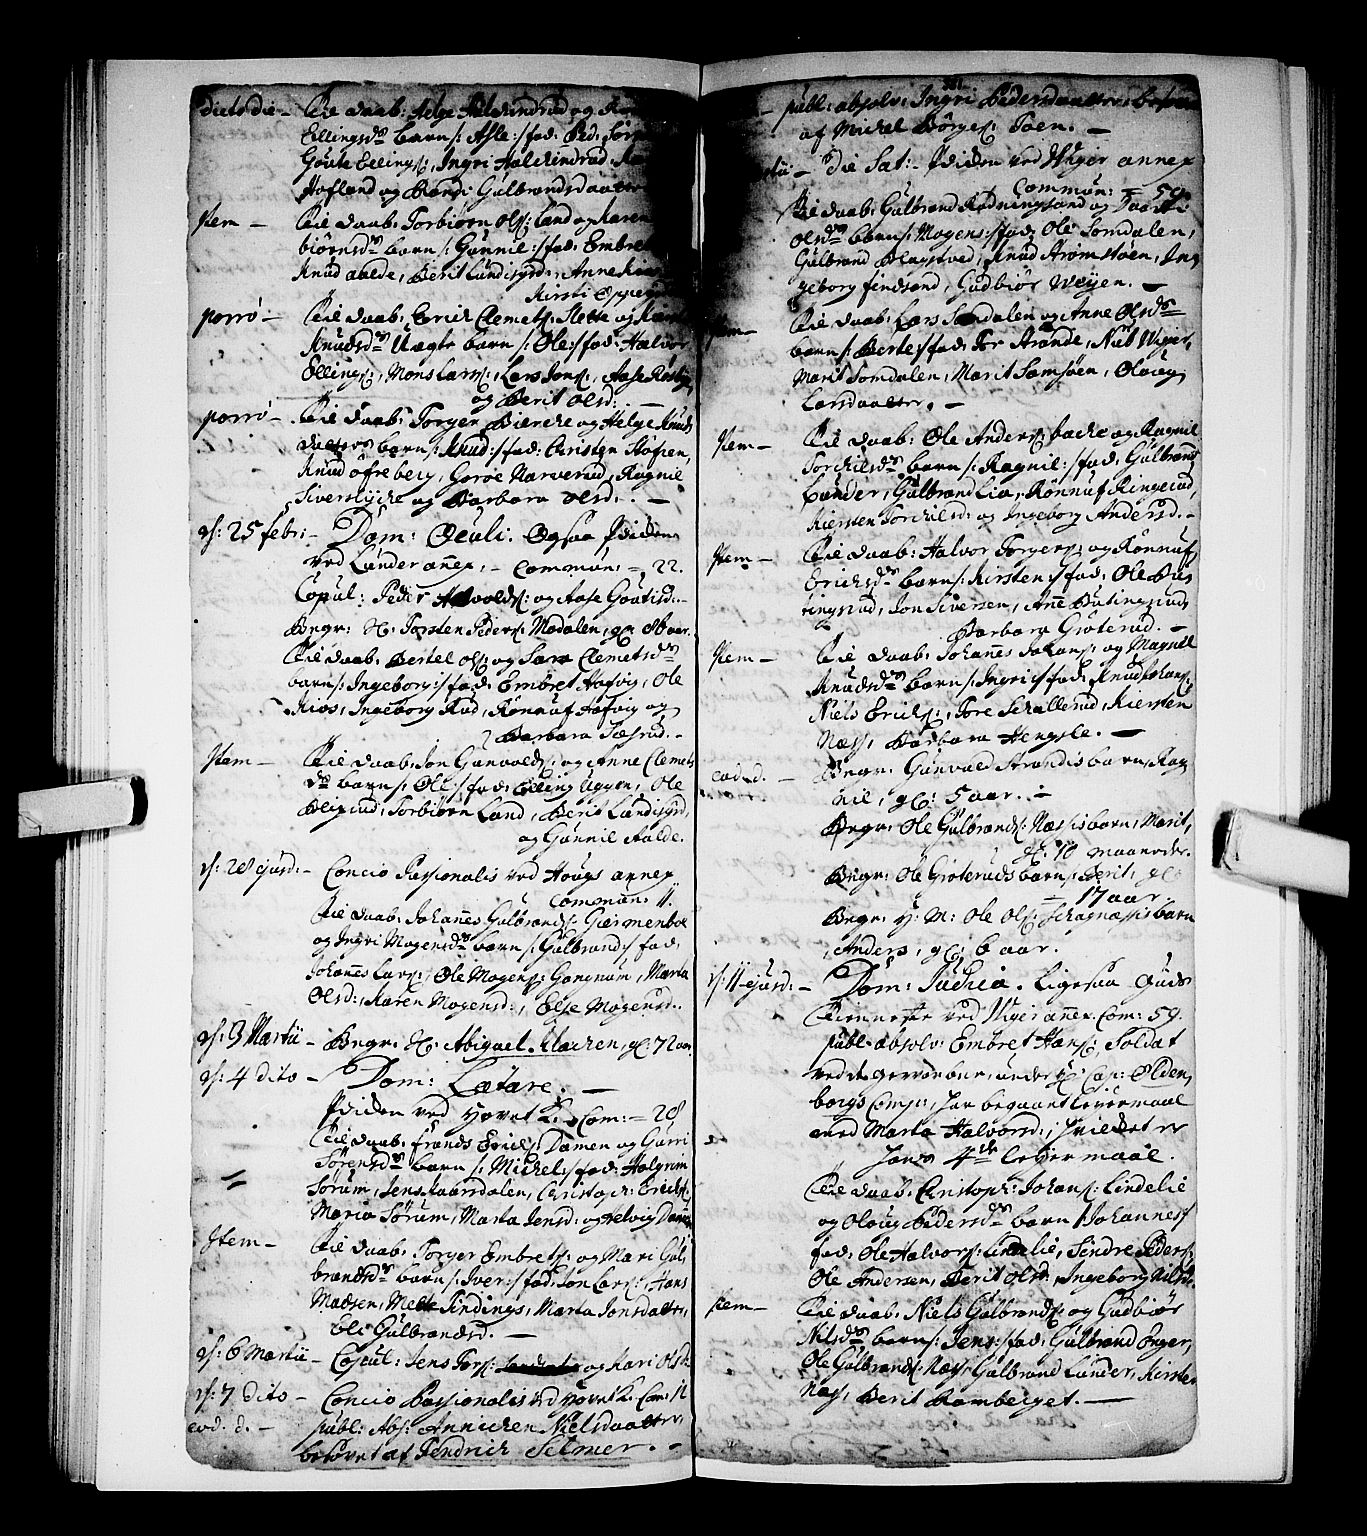 dicto die - Eie daab: Helge Halchindrud og
Ellingsdr barn /: Asle :/ fad: Ped:
Goute Ellings:, Ingri Halchindrud,
Hofland og Gulbrandsdaatter
Item - Eie daab: Torbiørn Ols: Land og Karen
biørnsdr barn /: Gunnil :/ fad: Embret
Knud aalde, Berit Landsgrd:, Anne
Kirsti
porrò - Eie daab: Erich Clemets: Slette og
Knudsdr Uægte barn /: Ole :/ fad: Halvor
Ellings:, Mons Lars:, Lars Jons:, Aase
og Berit Olsd: -
porrò - Eie daab: Torger Bierche og Helge Knuds
datters barn /: Knud :/ fad: Christen Hofsen,
Knud ofreberg, Goroe Narverud, Ragnil
Siverslyche og Barbara Olsd: -
d: 25 febr: - Dom: Oculi. Ogsaa Prædiken
ved Lunder annex. - Commun: = 22.
Copul: Peder Halvolds: og Aase Goutisd: -
Begr: Torsten Peders: Modalen, gl: 80 aar.
Eie daab: Bertel Ols: og Sara Clemetsdr
barn /: Ingeborg :/ fad: Embret Hafvig, Ole
Rios, Ingeborg Rud, Rønnuf Hafvig og
Barbara
Item - Eie daab: Jon Gunvalds: og Anne Clemets
dr barn /: Ole :/ fad: Elling Uggen, Ole
Torbiørn Land, Berit Landsgrd,
og Gunnil Aalde.
d: 28 ejusd: - Concio Passionalis ved Hougs annex
Commun: 11.
Eie daab: Johannes Gulbrands: Gjermenboe
og Ingri Mogensdr barn /: Gulbrand :/ fad:
Johannes Lars:, Ole Mogens: Gongnum, Marta
Olsd:, Karen Mogensd:, Else Mogensd:.
d: 3 Martii - Begr: Abigael Klachen, gl: 72 aar.
d: 4 dito - Dom: Lætare. -
Prædiken ved Hovet K. Com: - 28
Eie daab: Frands Erics: Damen og Gurri
Sørensdr barn /: Michel :/ fad: Halgrim
Sørum, Jens Kaarsdalen, Christoph: Erichs:
Maria Sørum, Marta Jensd: og Helvig Damen
Item - Eie daab: Torger Embrets: og Mari Gul
brandsdr barn /: Iver :/ fad: Jon Lars:, Hans
Madsen, Mette Tindings, Marta Jonsdatter,
Eli Gulbrandsd: -
d: 6 Martii - Copul: Jens Tors: og Kari Olsdr
d: 7 dito - Concio Passionalis ved Hovet K. Com: 11
eod: d: - publ: Abs: Annichen Nielsdaatter,
besovet af Hendrich Selmer. -
publ: absolv: Ingri Pedersdaatter, besovet
af Michel Børges: Toen. -
Die Sat: Prædiken ved Wiger annex
Commun: = 59.
Eie daab: Gulbrand Rødningsand og
Olsdr barn /: Mogens :/ fad: Ole Somdalen,
Gulbrand Knud Strømsøen, In
geborg Findsand, Gudbiør Weyen. -
Item - Eie daab: Lars Somdalen og Anne Olsdr
barn /: Berte :/ fad: Tor Strande, Niels Wiger,
Marit Somdalen, Marit Samsøen, Olaug
Larsdaatter. -
Item - Eie daab: Ole Anders: bache og Ragnil
Torchilsdr barn /: Ragnil :/ fad: Gulbrand
Lunder, Gulbrand Lia, Rønnuf Ringerud,
Kiersten Torchilsd: og Ingeborg Andersd: -
Item - Eie daab: Halvor Torgers: og Rønnuf
Erichsdr barn /: Kirsten :/ fad: Ole Bu
tingsrud, Jon Siversen, Anne Butingsrud,
Barbara Grøterud. -
Item - Eie daab: Johannes Johans: og Magnil
Knudsdr barn /: Ingri :/ fad: Knud Johans:,
Niels Erichs:, Tore Schallerud, Kiersten
Næss, Barbara Hengsle. -
eod: d: - Begr: Gunvald Strandis barn, Rag
nil, gl: 5 aar. -
Begr: Ole Gulbrands: Næssis barn, Marit,
gl: 10 maaneder.
Begr: Ole Grøteruds barn, Berit, gl:
17 aar
Begr: H: M: Ole Ols: Schagnæssis barn
Anders, gl: 6 aar.
d: 11 ejusd: - Dom: Judica. Ligesaa Guds
tienneste ved Wiger annex. Com: 59.
publ: absolv: Embret Hans:, Soldat
ved de gevorbne, under Hr: Cap: Olden
borgs Comp:, for begaaet Leyermaal
med Marta Halvorsd:, hvilket er
hans 4de Leyermaal.
Eie daab: Christoph: Johans: Lindelie
og Oloug Pedersdr barn /: Johannes :/
fad: Ole Halvors: Lindelie, Sindre Peders:
Ole Andersen, Berit Olsd:, Ingeborg Nilsdr
Item - Eie daab: Niels Gulbrands: og Gudbiør
Nilsdr barn /: Jens :/ fad: Gulbrand
Ole Gulbrands: Næss, Gulbrand Lunder, Kirsten
Næss, Berit Ramberget. -